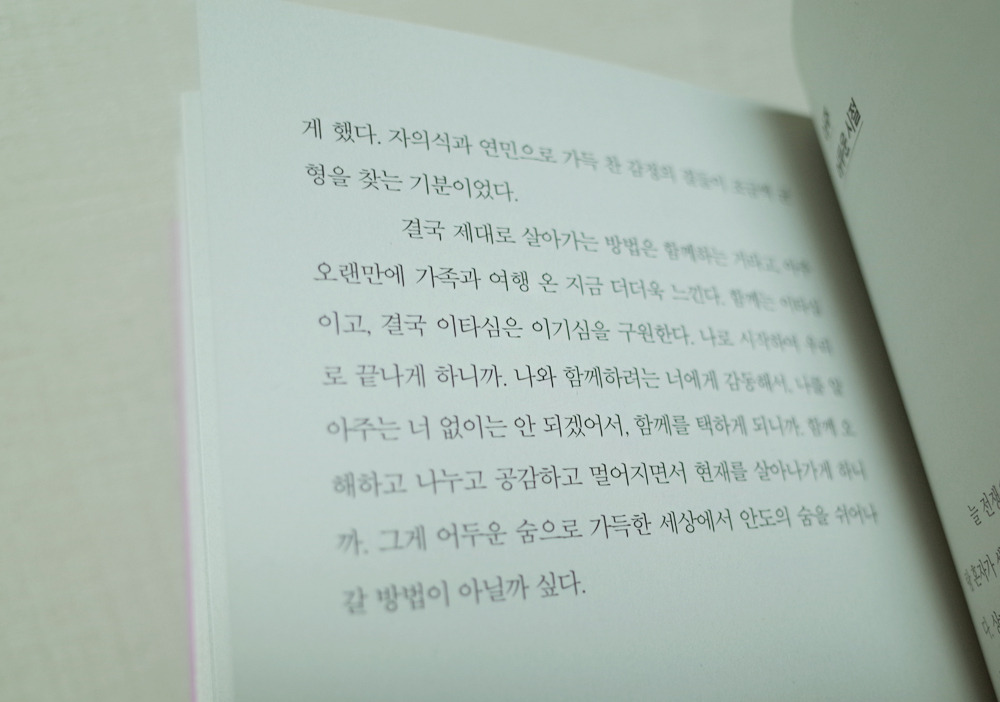 게 했다. 자의식과 연민으로 가득 찬 감정의 결들이 조금씩 균
형을 찾는 기분이었다.
결국 제대로 살아가는 방법은 함께하는 거라고, 아주
오랜만에 가족과 여행 온 지금 더더욱 느낀다. 함께는 이타심
이고, 결국 이타심은 이기심을 구원한다. 나로 시작하여 우리
로 끝나게 하니까. 나와 함께하려는 너에게 감동해서, 나를 알
아주는 너 없이는 안 되겠어서, 함께를 택하게 되니까. 함께 오
해하고 나누고 공감하고 멀어지면서 현재를 살아나가게 하니
까. 그게 어두운 숨으로 가득한 세상에서 안도의 숨을 쉬어나
갈 방법이 아닐까 싶다.
시절
늘 전쟁
혼자가